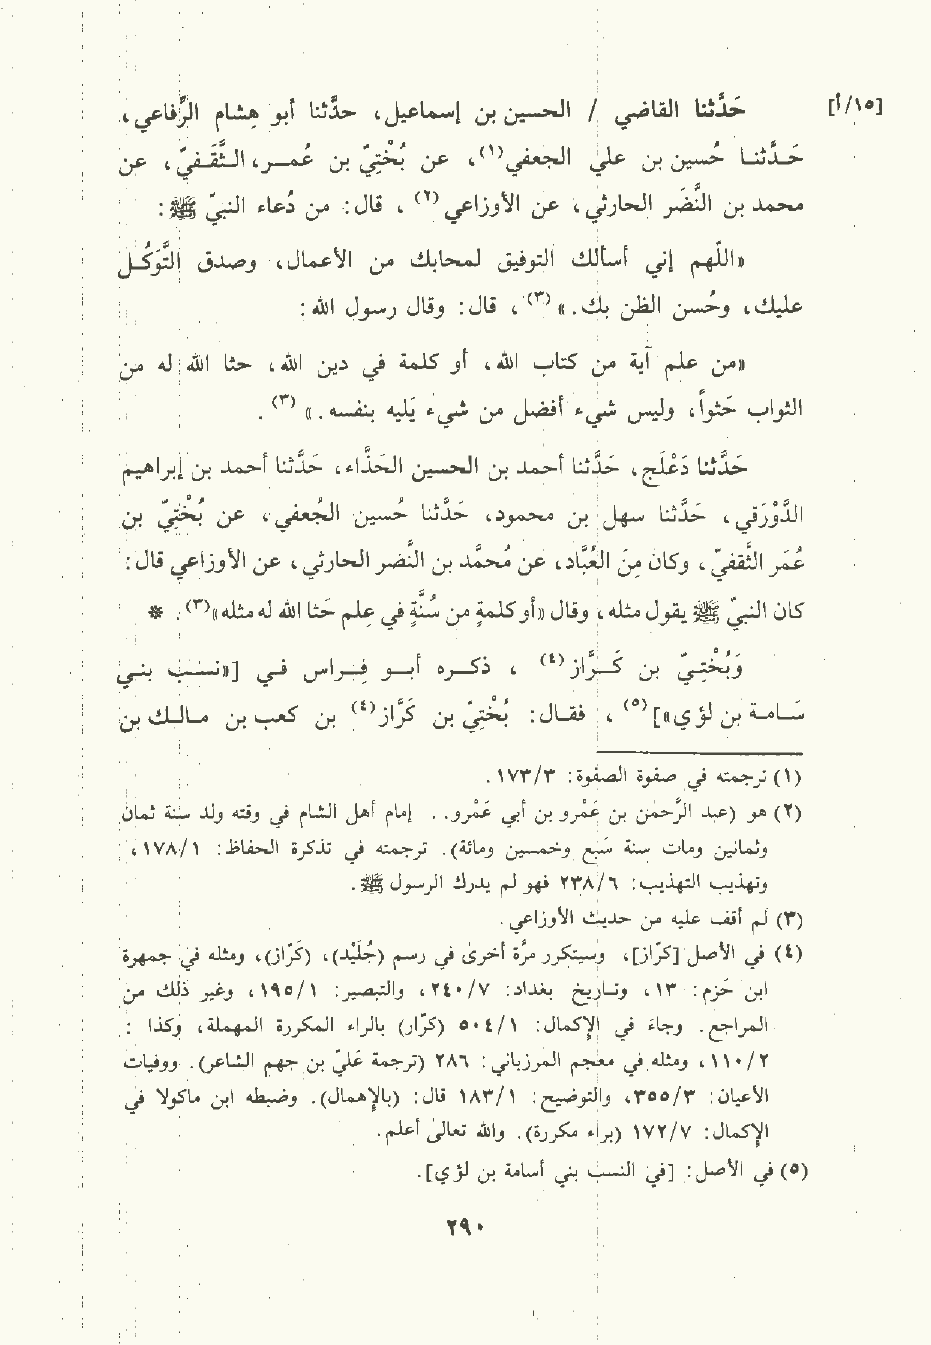 [١٥/أ] حَدَّثنا القاضي / الحسين بن إسماعيل، حدَّثنا أبو هِشام الرِّفاعي،
حَـدَّثنـا حُسين بن علي الجعفي(١)، عن بُخْتِيّ بن عُمـر، الـثَّـقَـفـيّ، عن
محمد بن النَّضر الحارثي، عن الأوزاعي(٢)، قال: من دُعاء النبيّ ﷺ:
«اللّهم إني أسألك التوفيق لمحابك من الأعمال، وصدق التَّوَكُّـل
عليك، وحُسن الظن بك.»(٣)، قال: وقال رسول الله:
«من علم آية من كتاب الله، أو كلمة في دين الله، حثا الله له من
الثواب حَثواً، وليس شيء أفضل من شيء يَليه بنفسه.»(٣).
حَدَّثنا دَعْلَج، حَدَّثنا أحمد بن الحسين الحَذَّاء، حَدَّثنا أحمد بن إبراهيم
الدَّوْرَقي، حَدَّثنا سهل بن محمود، حَدَّثنا حُسين الجُعفي، عن بُخْتِيّ بن
عُمَر الثَّقفيّ، وكان مِنَ العُبَّاد، عن مُحمَّد بن النَّضر الحارثي، عن الأوزاعي قال:
كان النبيّ ﷺ يقول مثله، وقال «أو كلمةٍ من سُنَّةٍ في علمٍ حَثا الله له مثله»(٣). *
وَبُخْتِـيّ بن كَـرَّاز(٤)، ذكـره أبـو فِـراس فـي [«نسـب بنـي
سَـامـة بن لؤي»](٥)، فقـال: بُخْتِيّ بن كَرَّاز(٤) بن كعب بن مـالـك بن
(١) ترجمته في صفوة الصفوة: ١٧٣/٣.
(٢) هو (عبد الرَّحمٰن بن عَمْرو بن أبي عَمْرو.. إمام أهل الشام في وقته ولد سنة ثمان
وثمانين ومات سنة سَبع وخمسين ومائة). ترجمته في تذكرة الحفاظ: ١٧٨/١،
وتهذيب التهذيب: ٢٣٨/٦ فهو لم يدرك الرسول ﷺ.
(٣) لم أقف عليه من حديث الأوزاعي.
(٤) في الأصل [كرَّاز]، وسيتكرر مرَّة أخرى في رسم (خُلَيْد)، (كَرَّاز)، ومثله في جمهرة
ابن حَزم: ١٣، وتاريخ بغداد: ٢٤٠/٧، والتبصير: ١٩٥/١، وغير ذلك من
المراجع. وجاء في الإكمال: ٥٠٤/١ (كرَّار) بالراء المكررة المهملة، وكذا:
١١٠/٢، ومثله في معجم المرزباني: ٢٨٦ (ترجمة عَليّ بن جهم الشاعر). ووفيات
الأعيان: ٣٥٥/٣، والتوضيح: ١٨٣/١ قال: (بالإهمال). وضبطه ابن ماكولا في
الإكمال: ١٧٢/٧ (براء مكررة). والله تعالى أعلم.
(٥) في الأصل: [في النسب بني أسامة بن لؤي].
٢٩٠